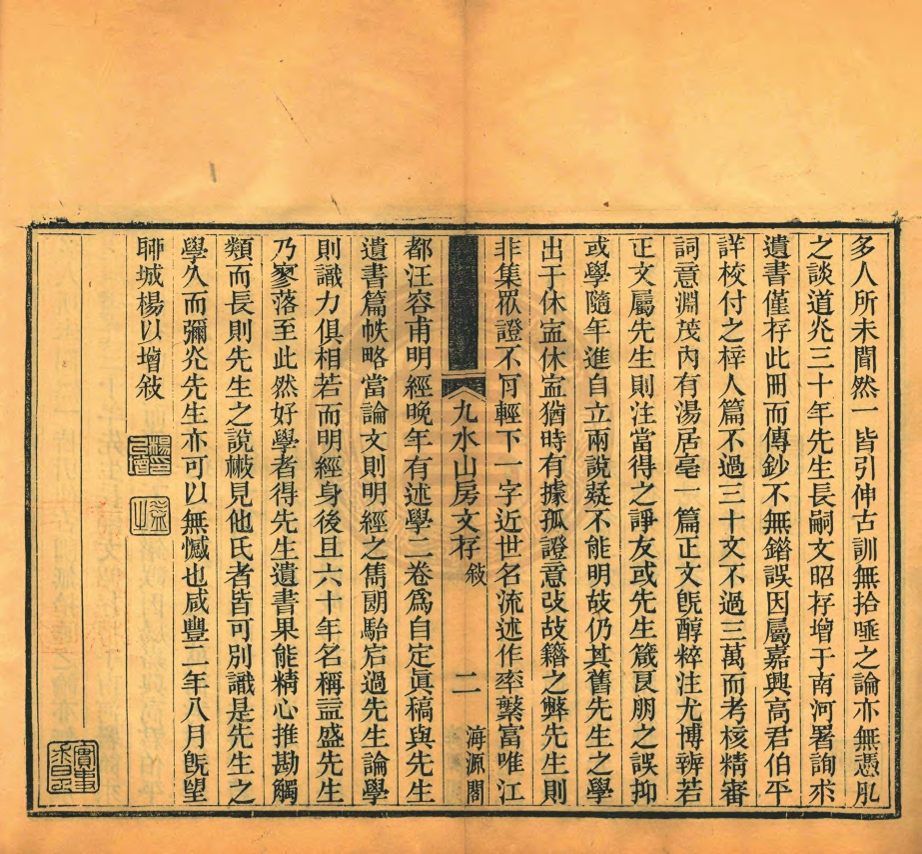 多人所未聞然一皆引伸古訓無拾唾之論亦無憑肊
之談道光三十年先生長嗣文昭存增于南河署詢求
遺書僅存此冊而傳鈔不無鍇誤因屬嘉興高君伯平
詳校付之梓人篇不過三十文不過三萬而考核精審
詞意淵茂內有湯居亳一篇正文旣醇粹注尤博辨若
正文屬先生則注當得之諍友或先生箴良朋之誤抑
或學隨年進自立兩說疑不能明故仍其舊先生之學
出于休寍休寍猶時有據孤證意攷故籍之弊先生則
非集眾證不肎輕下一字近世名流述作率繁富唯江
九水山房文存敍 二 海源閣
都汪容甫明經晚年有述學二卷爲自定眞稿與先生
遺書篇帙略當論文則明經之雋朗駘宕過先生論學
則識力俱相若而明經身後且六十年名稱諡盛先生
乃寥落至此然好學者得先生遺書果能精心推勘觸
類而長則先生之說㪇見他氏者皆可別識是先生之
學久而彌光先生亦可以無憾也咸豐二年八月旣望
聊城楊以增敍
實事求是